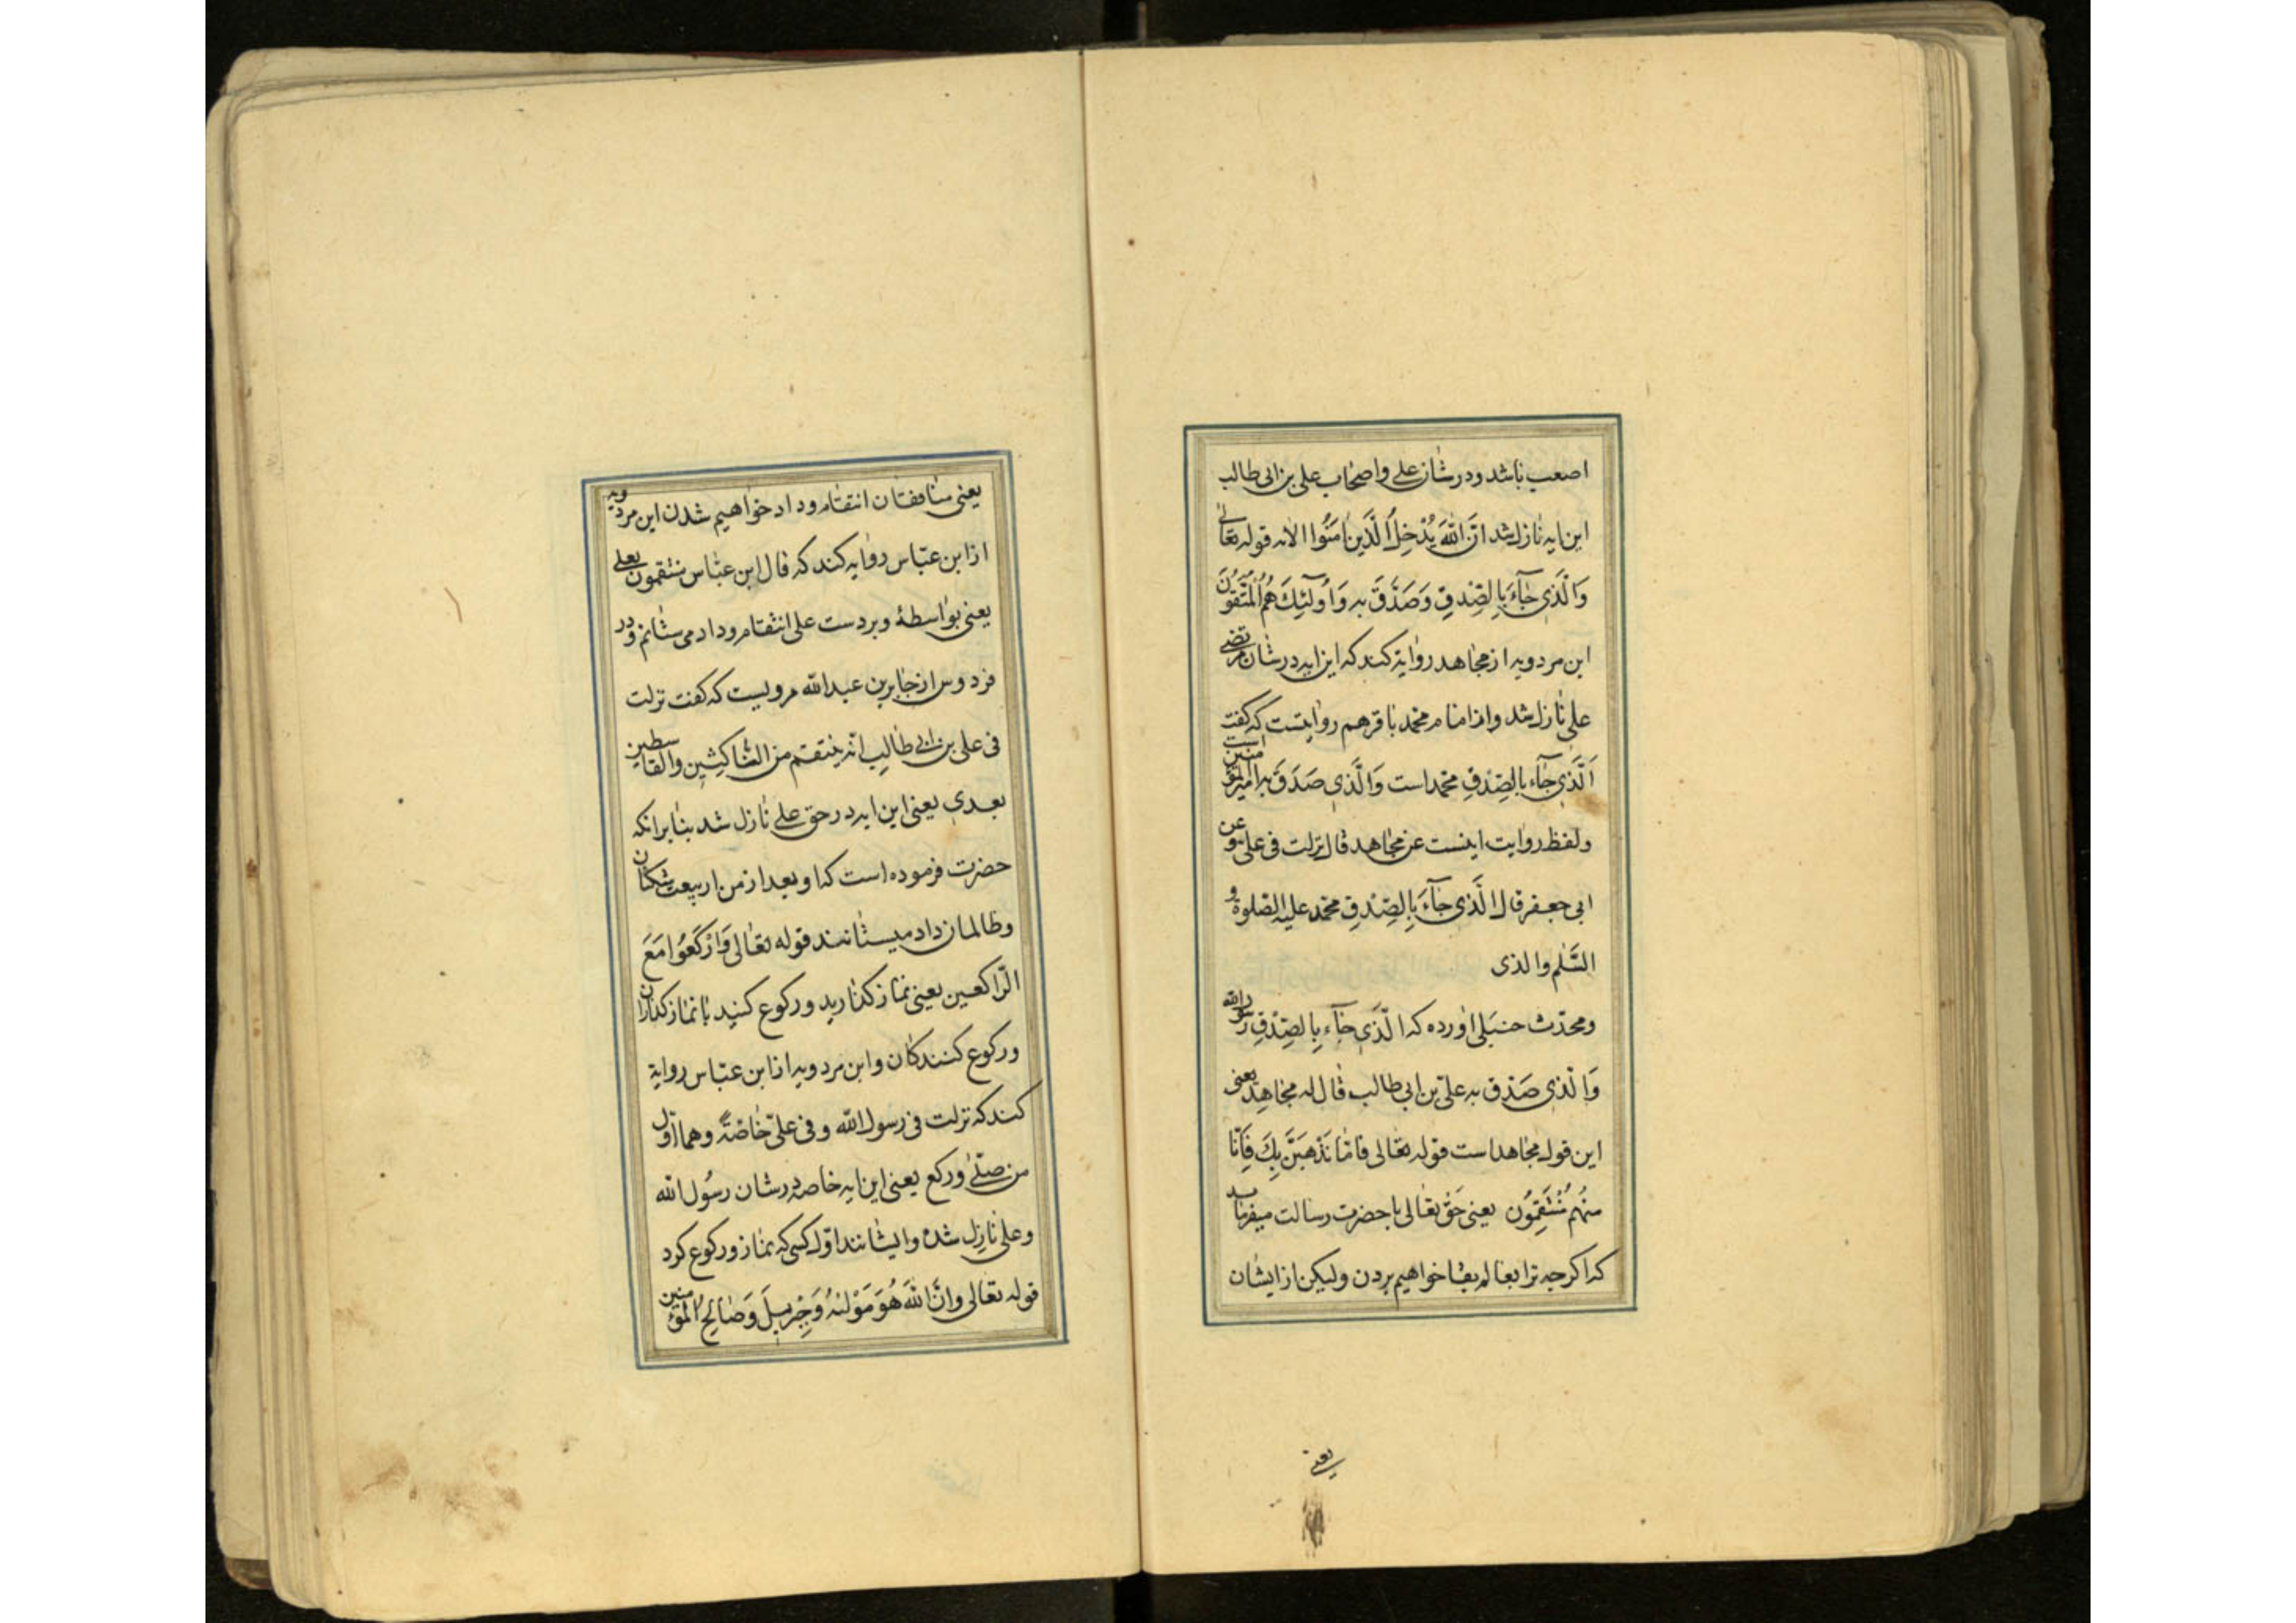 اصعب باشد ودر شان علی واصحاب علی بن ابی طالب
این ایه نازل شد اِنَّ اللّٰهَ یُدْخِلُ الَّذینَ اٰمَنُوا الایه قوله تعالی
وَالَّذی جٰآءَ بِالصِّدْقِ وَصَدَّقَ بِهِ وَاُولٓئِكَ هُمُ الْمُتَّقُونَ
ابن مردویه از مجاهد روایة کند که این ایه در شان مرتضی
علی نازل شد واز امام محمد باقر هم روایتست که گفت
اَلَّذی جٰآء بالصِّدْقِ محمد است وَالَّذی صَدَقَ به امیر المؤمنین است
ولفظ روایت اینست عن مجاهد قال نزلت فی علی وعن
ابی جعفر قال الَّذی جٰآءَ بِالصِّدْقِ محمّد علیه الصلوة و
السَّلٰم والذی
ومحدّث حنبلی اورده که الَّذی جٰآء بِالصِّدْقِ رسول الله
وَالَّذی صَدَّق به علیّ بن ابی طالب قال له مجاهِد یعنی
این قول مجاهد است قوله تعالی فامّا نَذْهَبَنَّ بِكَ فَاِنّا
مِنْهُم مُنْتَقِمُون یعنی حَق تعالی با حضرت رسالت میفرماید
که اکرچه ترا بعالم بقا خواهیم بردن ولیکن از ایشان
یعنی
یعنی منافقان انتقام وداد خواهیم شدن ابن مردویه
از ابن عبّاس روایه کند که قال ابن عبّاس منتقمون بعلی
یعنی بواسطهٔ وبر دست علی انتقام وداد می ستانم ودر
فردوس از جابر بن عبد الله مرویست که کفت نزلت
فی علی بن ابی طالِب انّه ینتقم من الناکثین والقاسطین
بعدی یعنی این ایه در حق علی نازل شد بنابرانکه
حضرت فرموده است که او بعد از من از بیعت شکنان
وظالمان داد میستانند قوله تعٰالی وَارْکَعُوا مَعَ
الرّاکعین یعنی نماز کذارید ورکوع کنید با نماز کذاران
ورکوع کنندکان وابن مردویه از ابن عبّاس روایة
کند که نزلت فی رسول الله وفی علیّ خاصّةً وهما اوّل
من صلّی ورکع یعنی این ایه خاصه در شان رسُول الله
وعلی نازِل شده وایشانند اوّل کسی که نماز ورکوع کرد
قوله تعالی وانَّ اللّٰهَ هُوَ مَوْلٰیهُ وَجِبْریلَ وَصٰالِحُ الْمُؤمنین